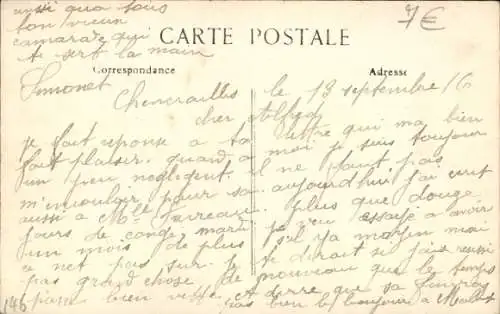 aussi qua tous
ton vieux
camarade qui
te sert la main
Simonet
7€
CARTE POSTALE
Correspondance
Adresse
le 18 septembre /6
cher Alfred
je fait reponse a ta lettre qui ma bien
fait plaisir. quand a moi je suis toujour
un peu negligent. il ne faut pas
m'envouloir pour sa. aujourdhui j'ai ecrit
aussi a Mlle plus que douze
jours de conge, mardi j'ai essaye a avoir
un mois de plus s'il y a moyen mai
a net pas sur. je te dirait si j'ais reussi
pas grand chose de nouveau que le temps
passe bien vite et dire que sa
pas bien le bonjour a
146